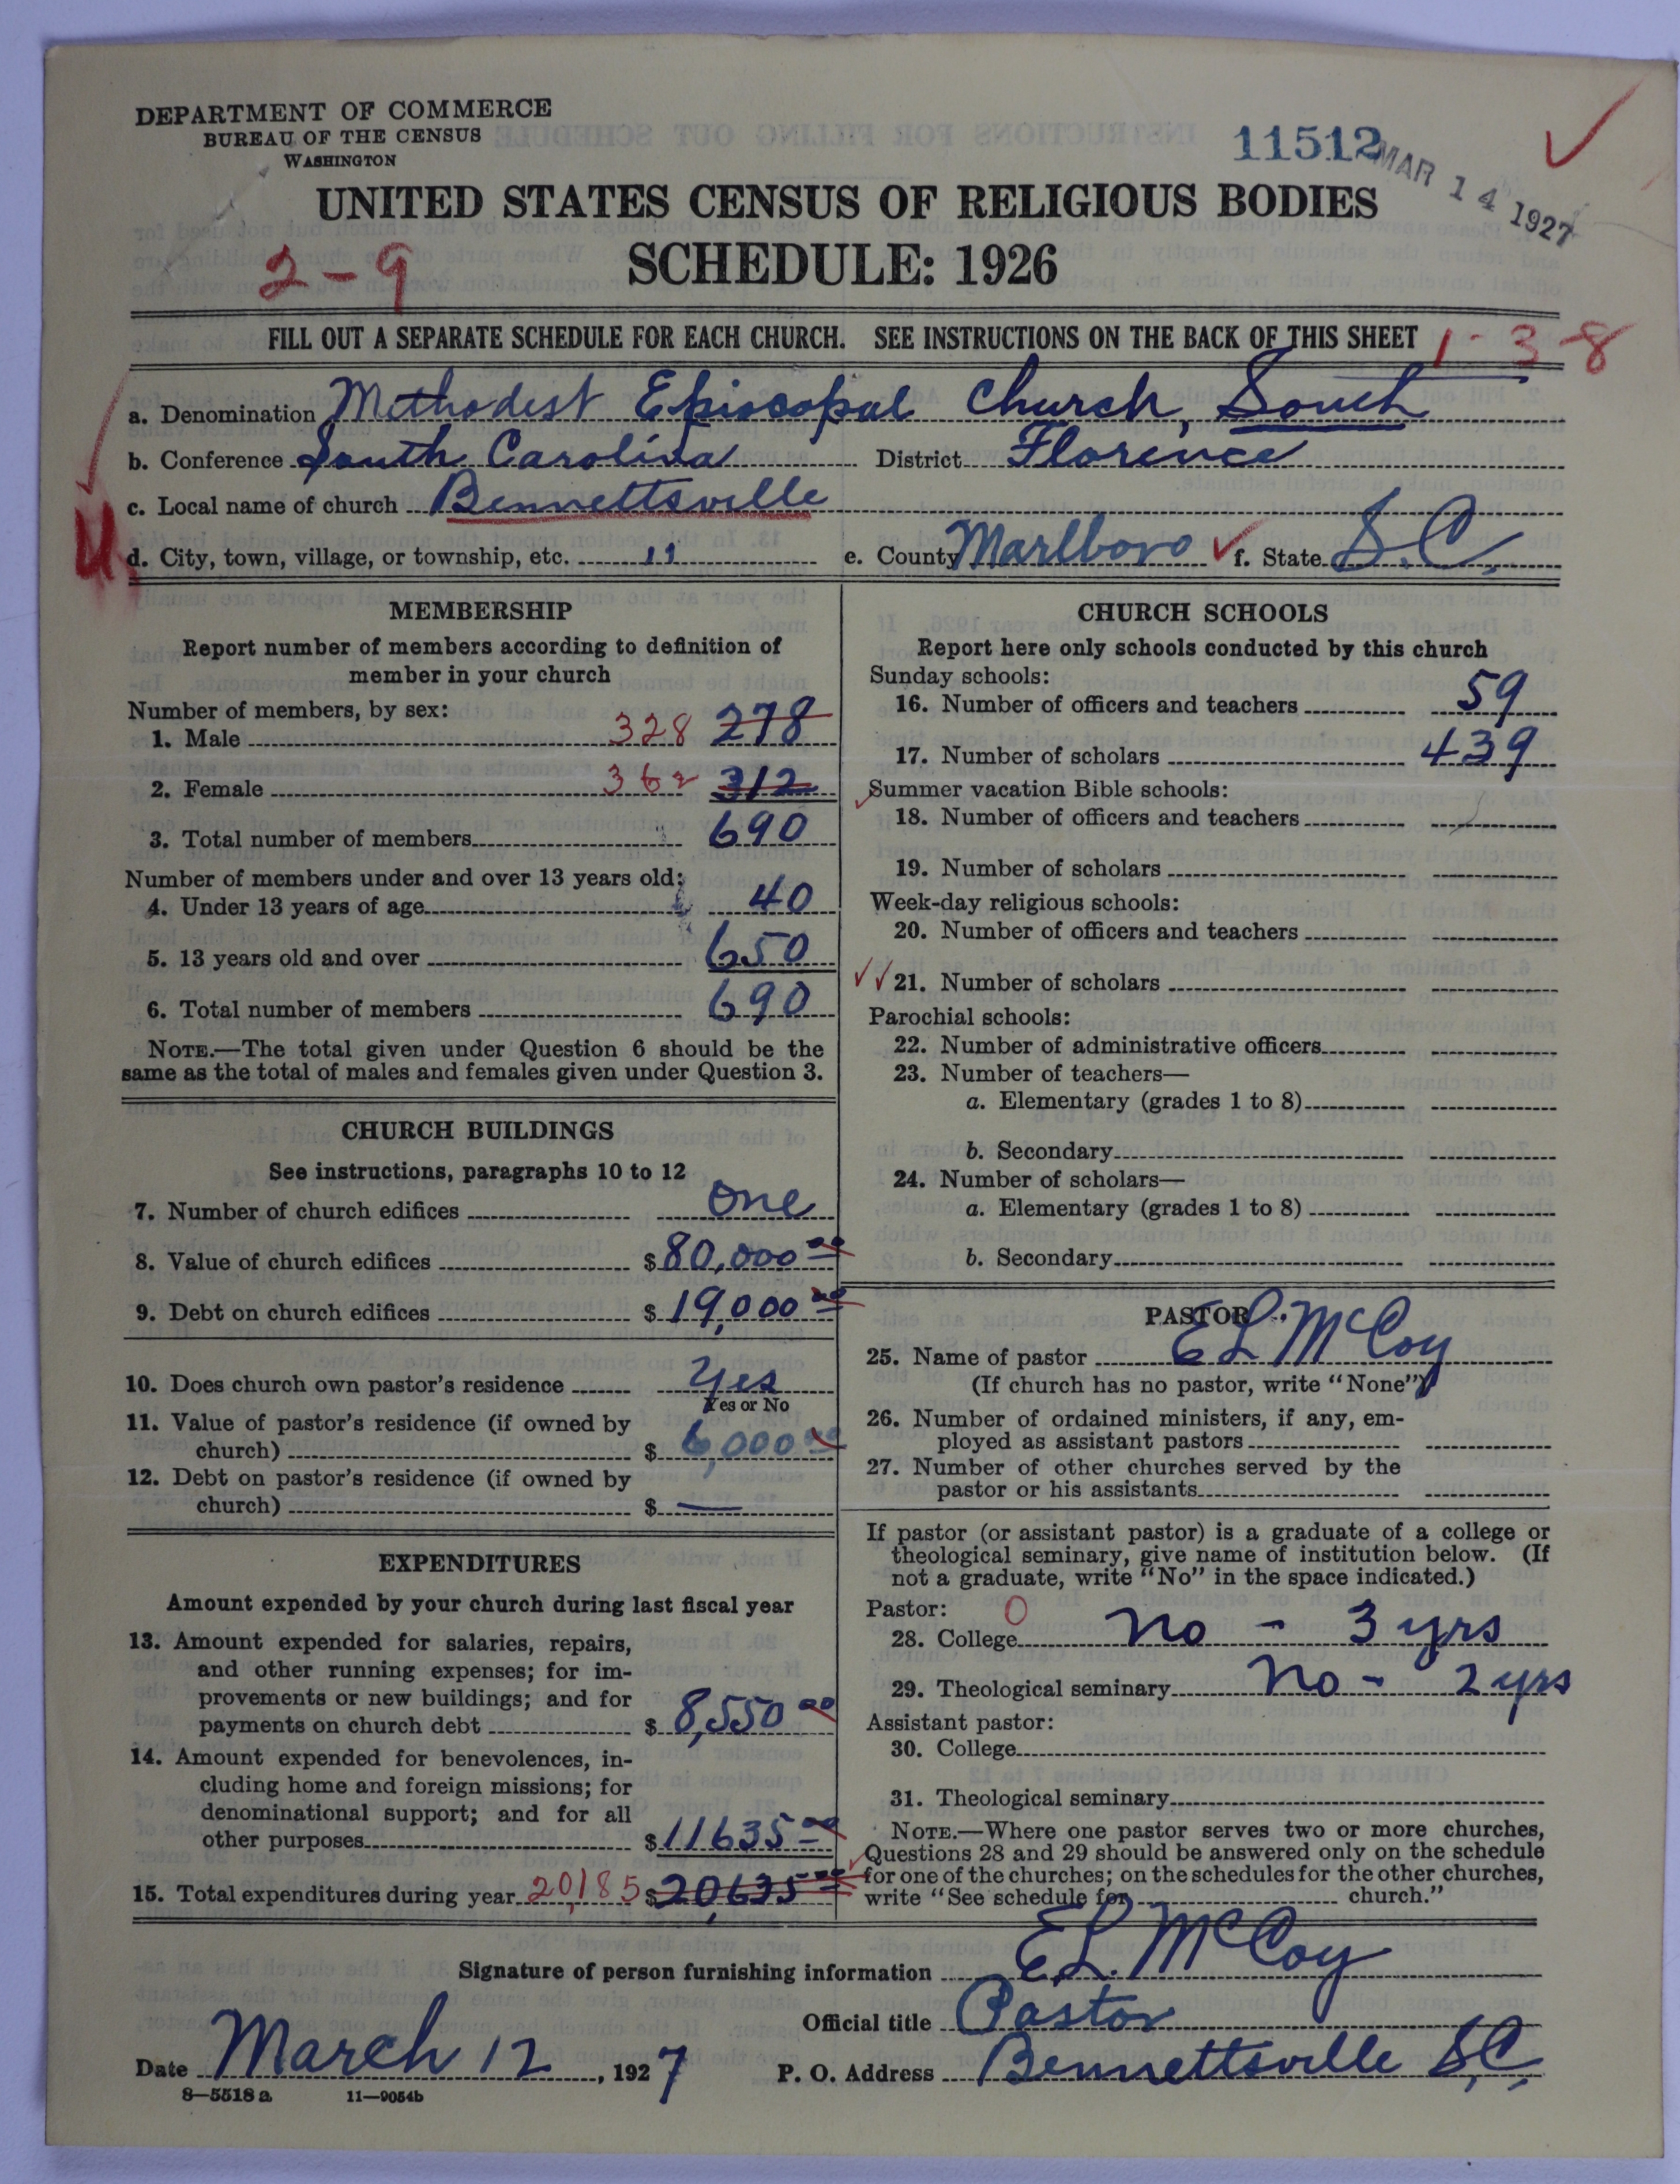 DEPARTMENT OF COMMERCE
BUREAU OF THE CENSUS
WASHINGTON
11512
MAR 14 1927
UNITED STATES CENSUS OF RELIGIOUS BODIES
2-9
SCHEDULE: 1926
FILL OUT A SEPARATE SCHEDULE FOR EACH CHURCH. SEE INSTRUCTIONS ON THE BACK OF THIS SHEET
1-3-8
a. Denomination Methodist Episcopal Church, South
b. Conference South Carolina District Florence
c. Local name of church Bennettsville
U
d. City, town, village, or township, etc. " e. County Marlboro f. State S.C.
MEMBERSHIP
Report number of members according to definition of
member in your church
Number of members, by sex:
1. Male 328 278
2. Female 362 312
3. Total number of members 690
Number of members under and over 13 years old:
4. Under 13 years of age 40
5. 13 years old and over 650
6. Total number of members 690
NOTE.—The total given under Question 6 should be the
same as the total of males and females given under Question 3.
CHURCH BUILDINGS
See instructions, paragraphs 10 to 12
7. Number of church edifices one
8. Value of church edifices $ 80,000 00
9. Debt on church edifices $ 19,000 00
10. Does church own pastor's residence Yes
Yes or No
11. Value of pastor's residence (if owned by
church) $ 6,000 00
12. Debt on pastor's residence (if owned by
church) $ —
EXPENDITURES
Amount expended by your church during last fiscal year
13. Amount expended for salaries, repairs,
and other running expenses; for im-
provements or new buildings; and for
payments on church debt $ 8,550 00
14. Amount expended for benevolences, in-
cluding home and foreign missions; for
denominational support; and for all
other purposes $ 11635 00
15. Total expenditures during year 20,185 $ 20,635 00
CHURCH SCHOOLS
Report here only schools conducted by this church
Sunday schools:
16. Number of officers and teachers 59
17. Number of scholars 439
Summer vacation Bible schools:
18. Number of officers and teachers
19. Number of scholars
Week-day religious schools:
20. Number of officers and teachers
21. Number of scholars
Parochial schools:
22. Number of administrative officers
23. Number of teachers—
a. Elementary (grades 1 to 8)
b. Secondary
24. Number of scholars—
a. Elementary (grades 1 to 8)
b. Secondary
PASTOR
25. Name of pastor E L McCoy
(If church has no pastor, write "None")
26. Number of ordained ministers, if any, em-
ployed as assistant pastors
27. Number of other churches served by the
pastor or his assistants
If pastor (or assistant pastor) is a graduate of a college or
theological seminary, give name of institution below. (If
not a graduate, write "No" in the space indicated.)
Pastor: 0
28. College no - 3 yrs
29. Theological seminary no - 2 yrs
Assistant pastor:
30. College
31. Theological seminary
NOTE.—Where one pastor serves two or more churches,
Questions 28 and 29 should be answered only on the schedule
for one of the churches; on the schedules for the other churches,
write "See schedule for church."
Signature of person furnishing information E.L. McCoy
Official title Pastor
Date March 12, 1927 P. O. Address Bennettsville S.C.
8—5518 a 11—9054b